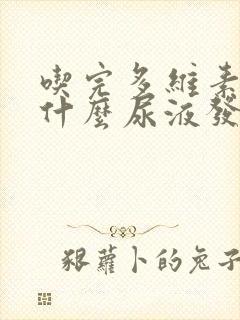 喫完多維素
什麼尿液發
狠蘿卜的兔子